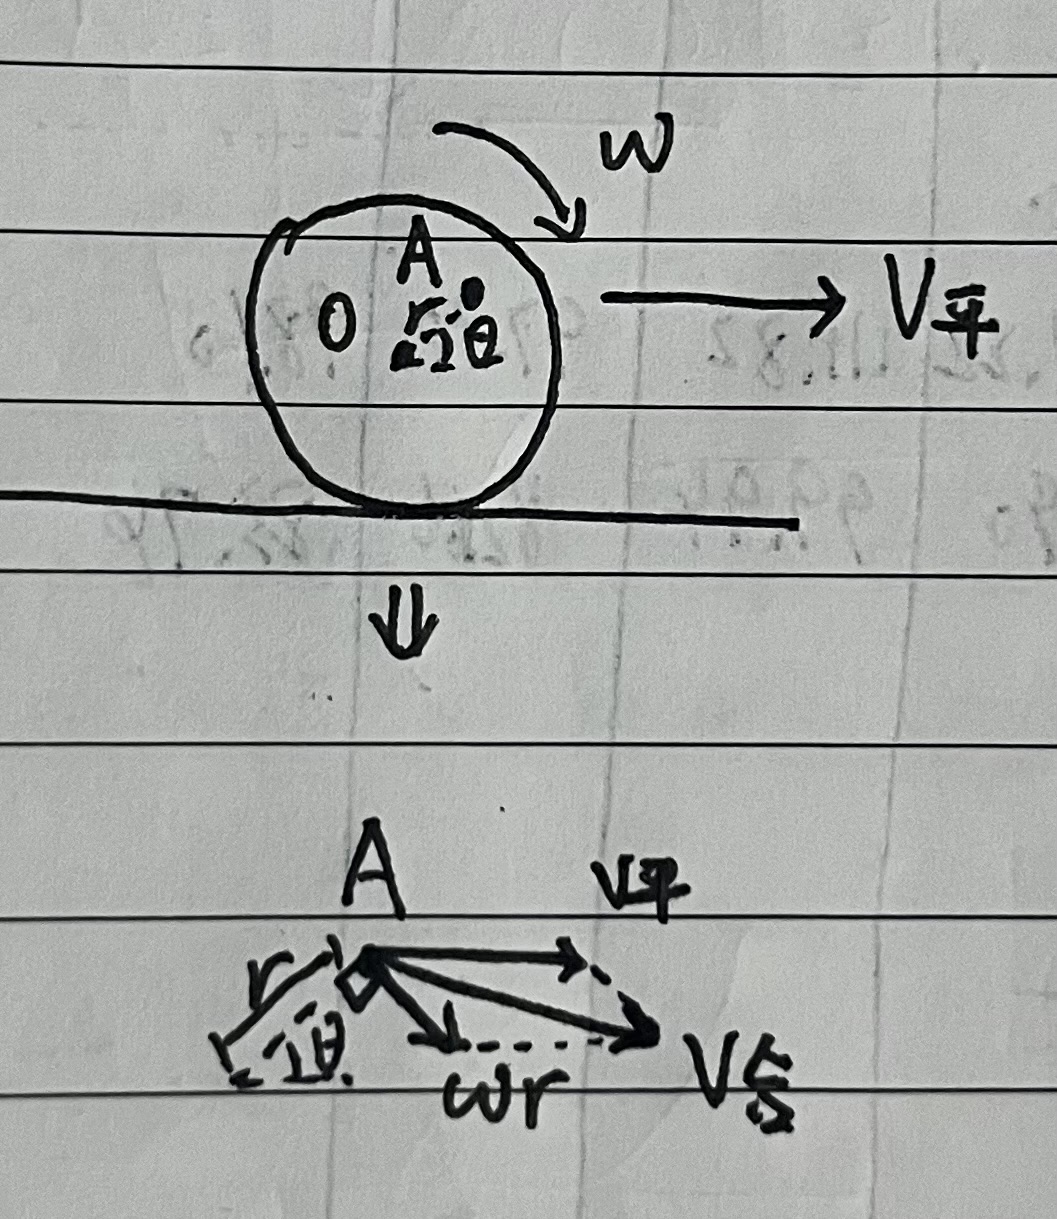 ω
A
V平
O
r
θ
A
V平
r
θ
ωr
V总